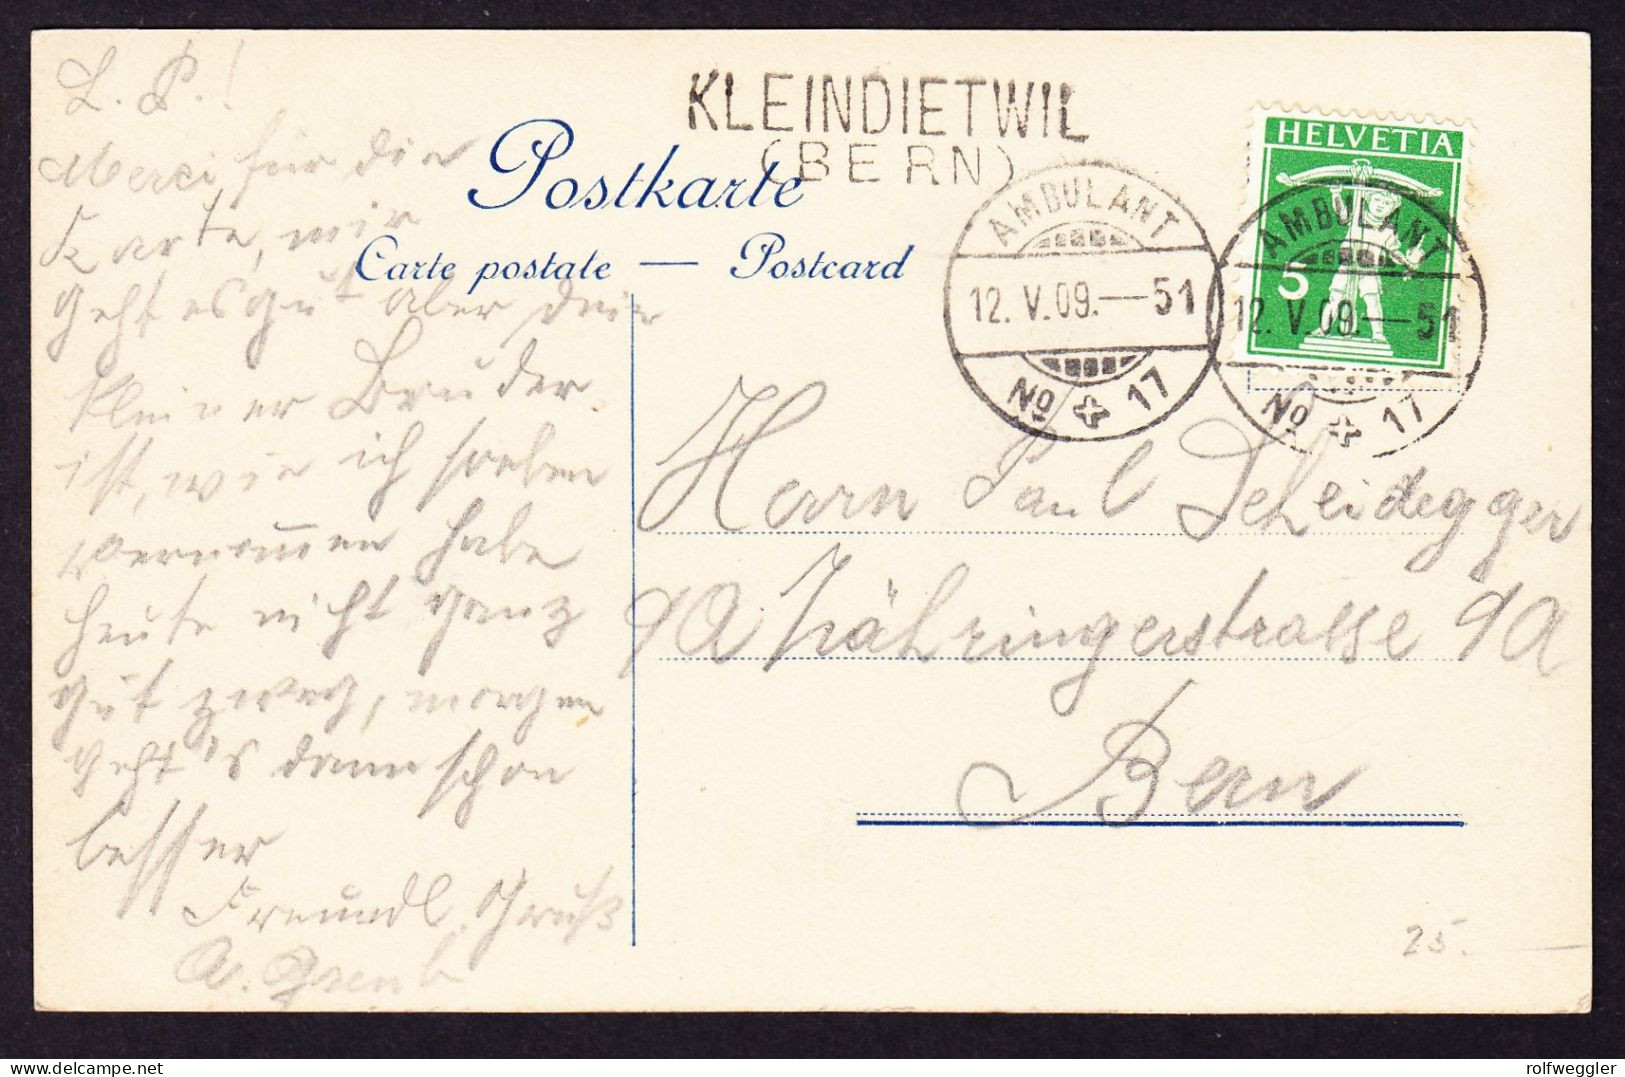 L. P.!
Merci für die
Karte, mir
geht es gut aber dein
kleiner Bruder
ist, wie ich soeben
vernommen habe
heute nicht ganz
gut zweg, morgen
geht's dann schon
besser
Freundl. Gruß
KLEINDIETWIL
(BERN)
Postkarte
Carte postale — Postcard
AMBULANT
12. V. 09. — 51
No 17
HELVETIA
5
AMBULANT
12. V. 09. — 51
No 17
Herrn Paul Scheidegger
9A Zähringerstrasse 9A
Bern
25.—
rolfweggler